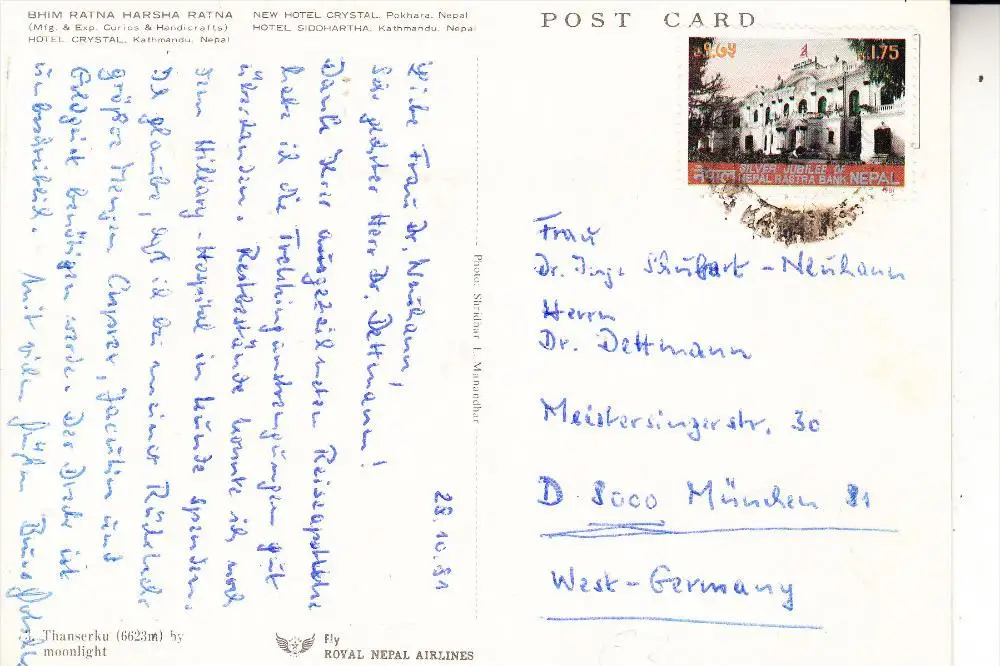 BHIM RATNA HARSHA RATNA
(Mfg. & Exp. Curios & Handicrafts)
HOTEL CRYSTAL, Kathmandu, Nepal
NEW HOTEL CRYSTAL, Pokhara, Nepal
HOTEL SIDDHARTHA, Kathmandu, Nepal
POST CARD
रु.१.७५ Rs.1.75
SILVER JUBILEE OF
नेपाल NEPAL RASTRA BANK, NEPAL
1981
28.10.81
Liebe Frau Dr. Neuhann!
Sehr geehrter Herr Dr. Dettmann!
Dank Ihrer ausgezeichneten Reiseapotheke
habe ich die Trekkinganstrengungen gut
überstanden. Restbestände konnte ich noch
dem Hillary-Hospital in Kunde spenden.
Ich glaube, daß ich bei meiner Rückkehr
größere Mengen Jacutin und
Goldgeist benötigen werde. Der Dreck ist
unbeschreiblich. Mit vielen Grüßen
Photo: Shridhar L. Manandhar
Frau
Dr. Inge Schubart - Neuhann
Herrn
Dr. Dettmann
Meistersingerstr. 30
D 8000 München 81
West-Germany
Thanserku (6623m) by
moonlight
Fly
ROYAL NEPAL AIRLINES